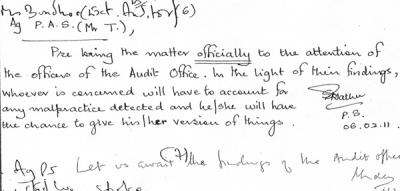 Ag P.A.S. (Mr T.),
Pse bring the matter officially to the attention of
the officers of the Audit Office. In the light of their findings,
whoever is concerned will have to account for
any malpractice detected and he/she will have
the chance to give his/her version of things.
P.S.
06.02.11.
Ag PS Let us await the findings of the Audit office